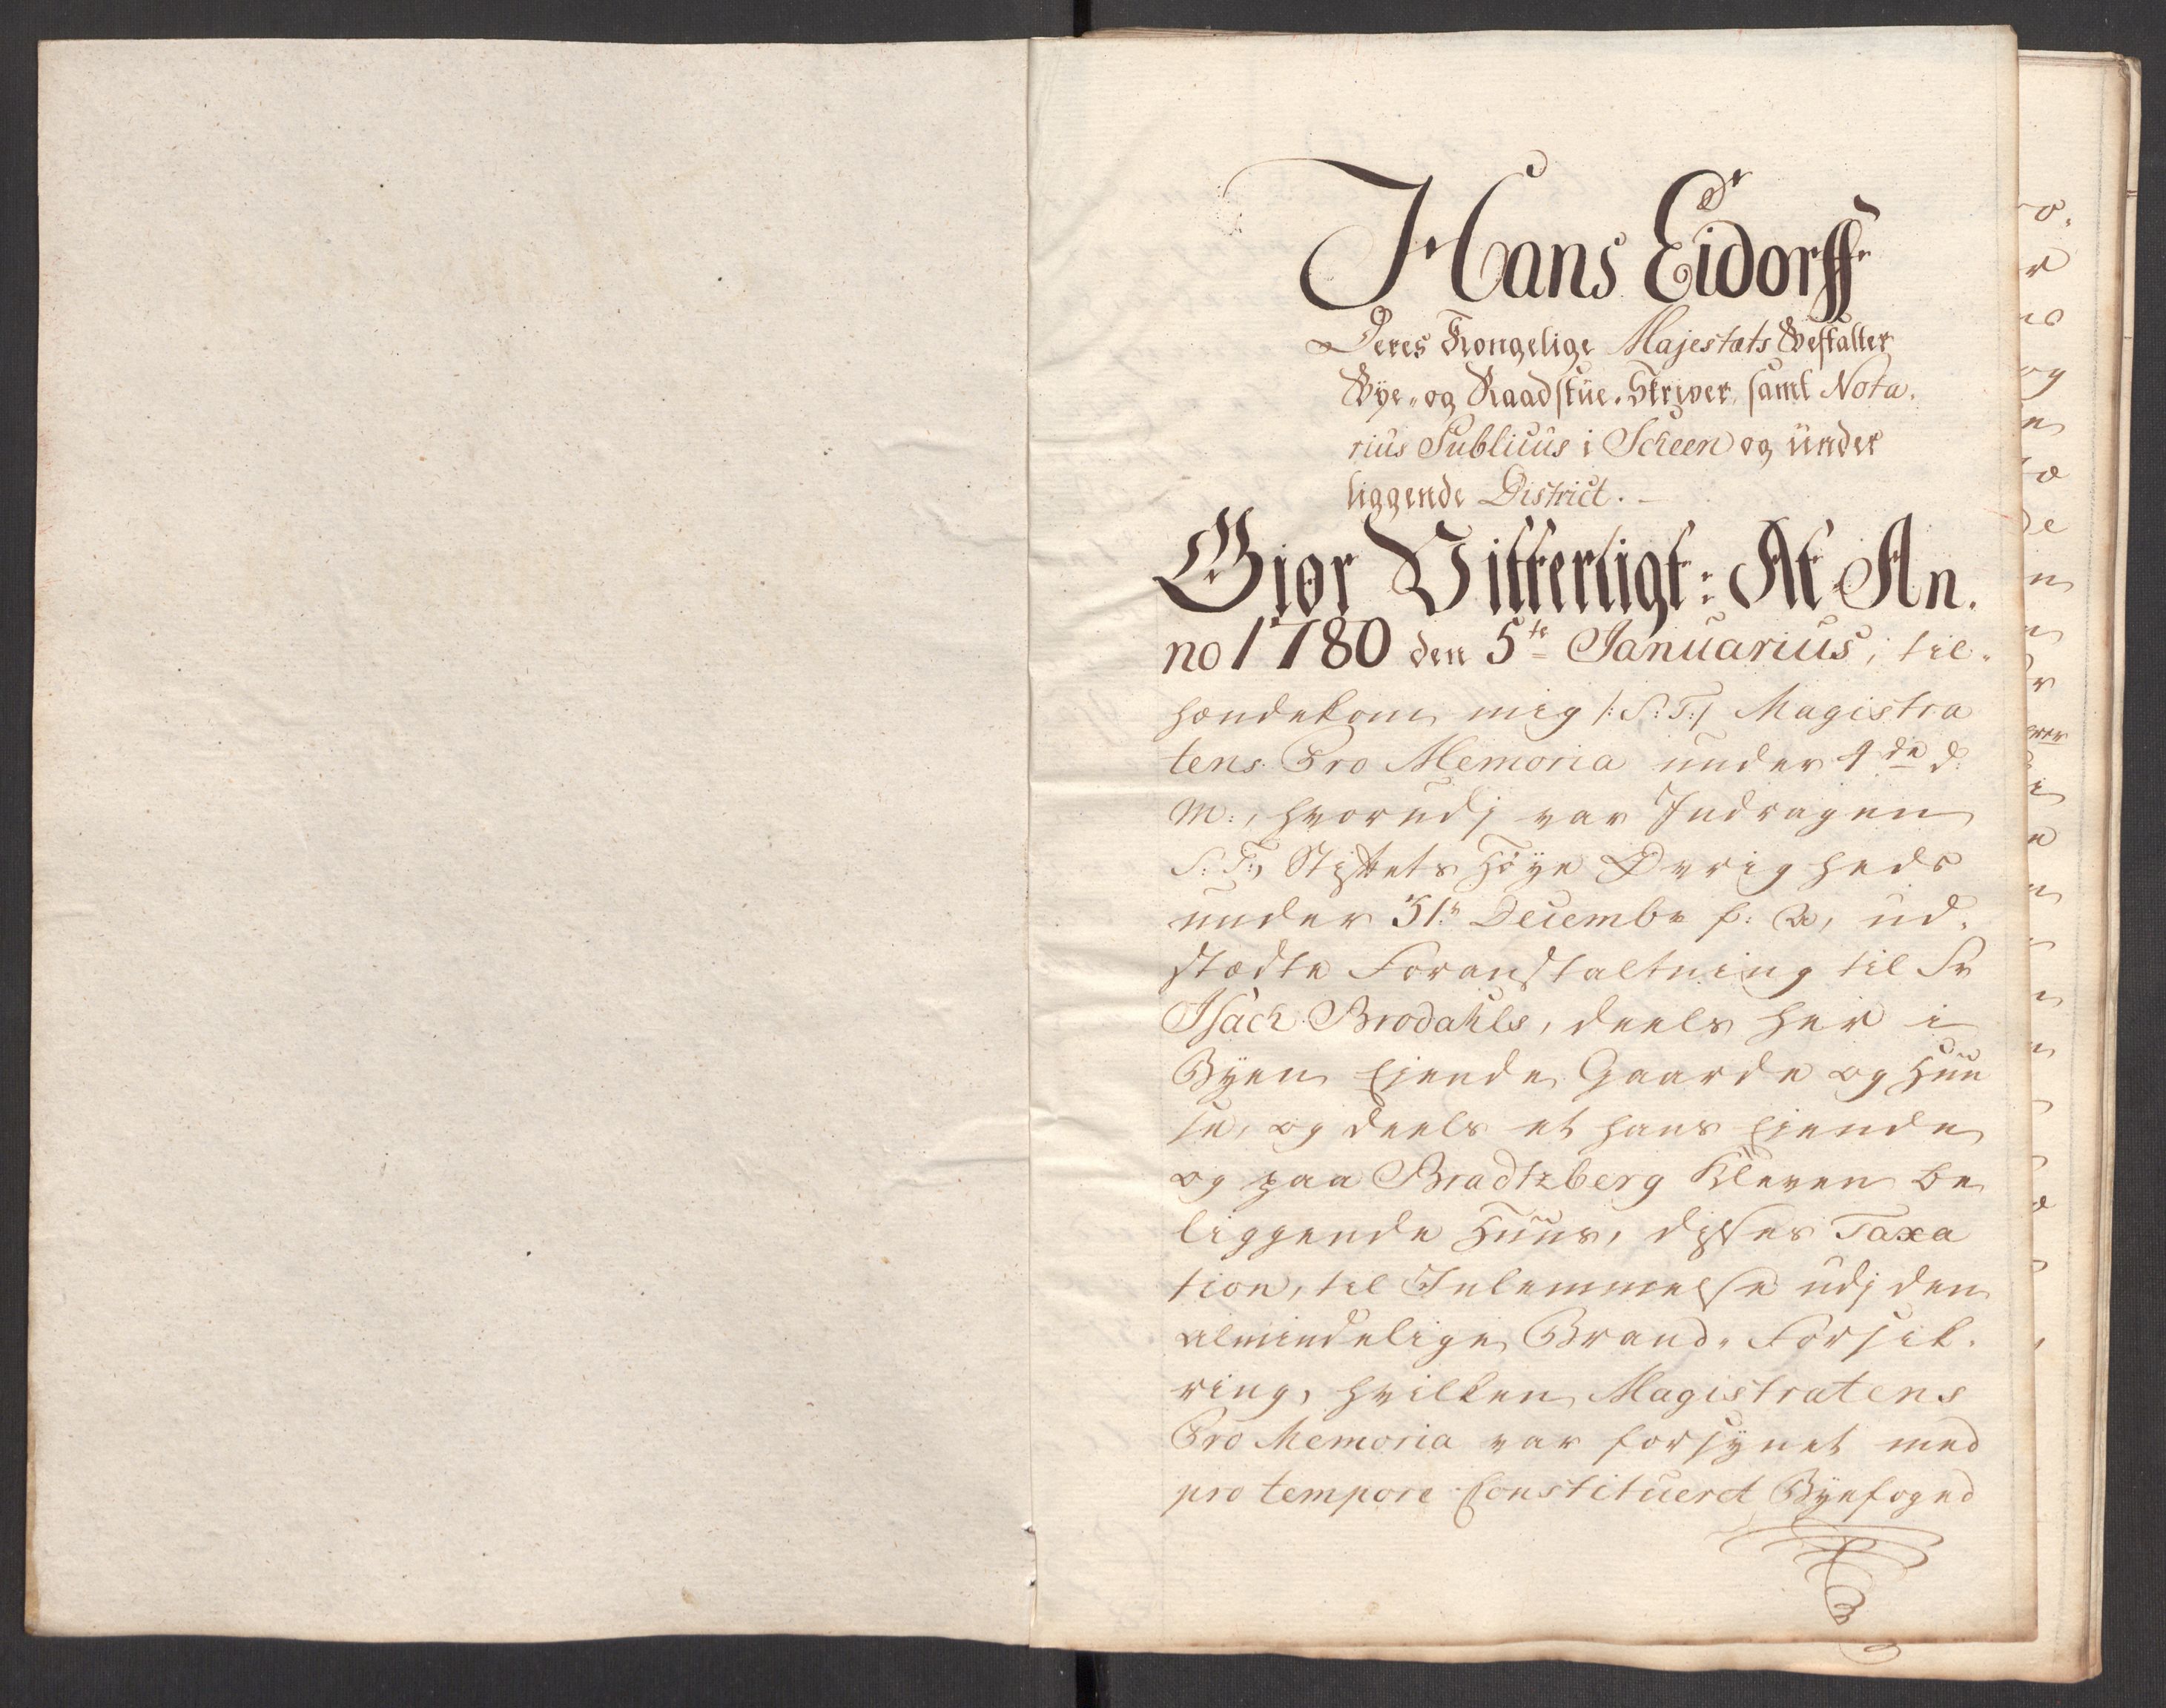 Hans Eidorff
Deres Kongelige Majestæts Bestalter
Bÿe- og Raadstüe-Skriver, samt Nota-
rius Publicus i Scheen og ünder
liggende District.
Giør Vitterligt: At An-
no 1780 den 5te Januarius, til-
hændekom mig /:S:T:/ Magistra
tens Pro Memoria under 4de d:
M:, hvorudj var Indragen
S:T:, Stiftets Høÿe Øvrigheds
under 31te Decembr f: A, ud-
stædte Foranstaltning til Sr
Isach Brodahls, deels her i
Bÿen Ejende Gaarde og Huu
se, og deels et hans Ejende
og paa Bradtzberg Kleven be
liggende Huus, disses Taxa
tion, til Inlemmelse udj den
almindelige Brand-Forsik-
ring, hvilken Magistratens
Pro Memoria var forsÿnet med
pro tempore Constitueret Bÿefoged